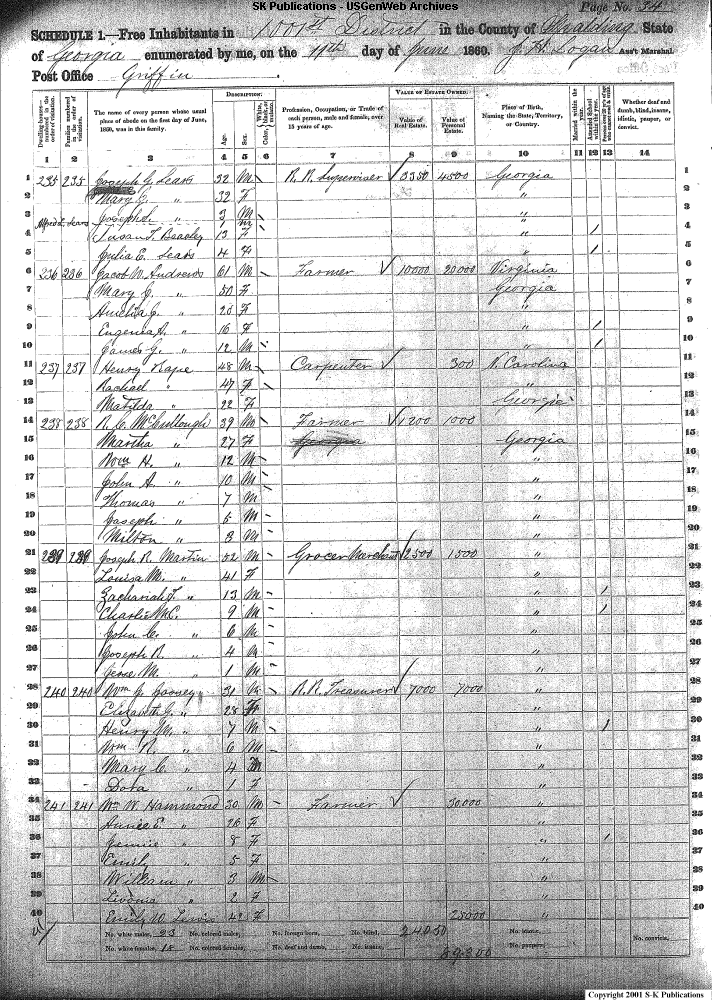 SK Publications - USGenWeb Archives
Page No. 34
SCHEDULE 1.—Free Inhabitants in 1001st District in the County of Spalding State
of Georgia enumerated by me, on the 11th day of June 1860. J. H. Logan Ass't Marshal.
Post Office Griffin
Dwelling-houses— numbered in the order of visitation.
Families numbered in the order of visitation.
The name of every person whose usual place of abode on the first day of June, 1860, was in this family.
DESCRIPTION:
Age.
Sex.
Color,
Profession, Occupation, or Trade of each person, male and female, over 15 years of age.
VALUE OF ESTATE OWNED.
Value of Real Estate.
Value of Personal Estate.
Place of Birth, Naming the State, Territory, or Country.
Married within the year.
Attended School within the year.
Whether deaf and dumb, blind, insane, idiotic, pauper, or convict.
1 2 3 4 5 6 7 8 9 10 11 12 13 14
1 235 235 Joseph G. Sears 32 M R. R. Superviser 3350 4500 Georgia 1
2 Mary G. " 32 F " 2
3 Joseph S. " 3 M " 3
Alfred L. Sears 1 M "
4 Susan T. Beasley 13 F " / 4
5 Julia E. Sears 4 F " / 5
6 236 236 Jacob N. Andrews 61 M Farmer 10000 20000 Virginia 6
7 Mary C. " 50 F Georgia 7
8 Amelia J. " 20 F " 8
9 Eugenia A. " 16 F " / 9
10 James G. " 12 M " / 10
11 237 237 Henry Kape 48 M Carpenter 300 N. Carolina 11
12 Rachael " 47 F " 12
13 Matilda " 22 F Georgia 13
14 238 238 R. C. McCullough 39 M Farmer 1200 1000 " 14
15 Martha " 27 F Georgia Georgia 15
16 Wm H. " 12 M " 16
17 John A. " 10 M " 17
18 Thomas " 7 M " 18
19 Joseph " 5 M " 19
20 Milton " 3 M " 20
21 239 239 Joseph R. Martin 52 M Grocer Merchant 2500 1500 " 21
22 Louisa M. " 41 F " 22
23 Zachariah T. " 13 M " / 23
24 Charlie McC. 9 M " / 24
25 John C. " 6 M " 25
26 Joseph R. " 4 M " 26
27 Jesse M. " 1 M " 27
28 240 240 Wm J. Coosey " 31 M R. R. Treasurer 7000 7000 " 28
29 Elizabeth G. " 28 F " 29
30 Henry M. " 7 M " / 30
31 Wm R. " 6 M " 31
32 Mary C. " 4 " 32
33 Dora " 1 F " 33
34 241 241 Wm W. Hammond 30 M Farmer 30,000 " 34
35 Annie E. " 26 F " 35
36 Jennie " 8 F " / 36
37 Emily " 5 F " 37
38 William " 3 M " 38
39 Livonia " 2 F " 39
40 Emily W. Lewis 42 F 25000 " 40
No. white males, 23 No. colored males, No. foreign born, No. blind, 24050 No. idiotic,
No. white females, 18 No. colored females, No. deaf and dumb, No. insane, 89300 No. paupers, No. convicts,
Copyright 2001 S-K Publications